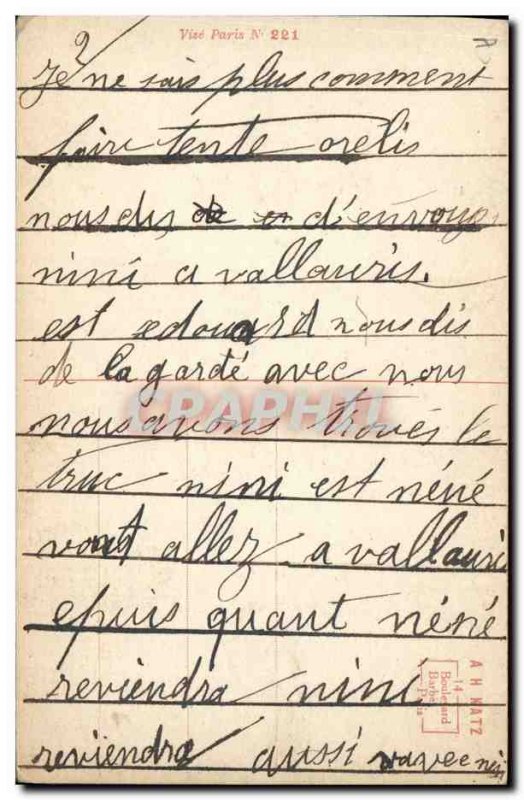 Visé Paris N° 221
2/
Je ne sais plus comment
faire tente orelis
nous dis d'envoye
nini a vallauris.
est edouard nous dis
de la gardé avec nous
nous avons trouvés le
truc nini est néné
vont allez a vallauris
epuis quant néné
reviendra nini
reviendra aussi avec
CPAPHIL
A H KATZ
14
Boulevard
Barbès
Paris